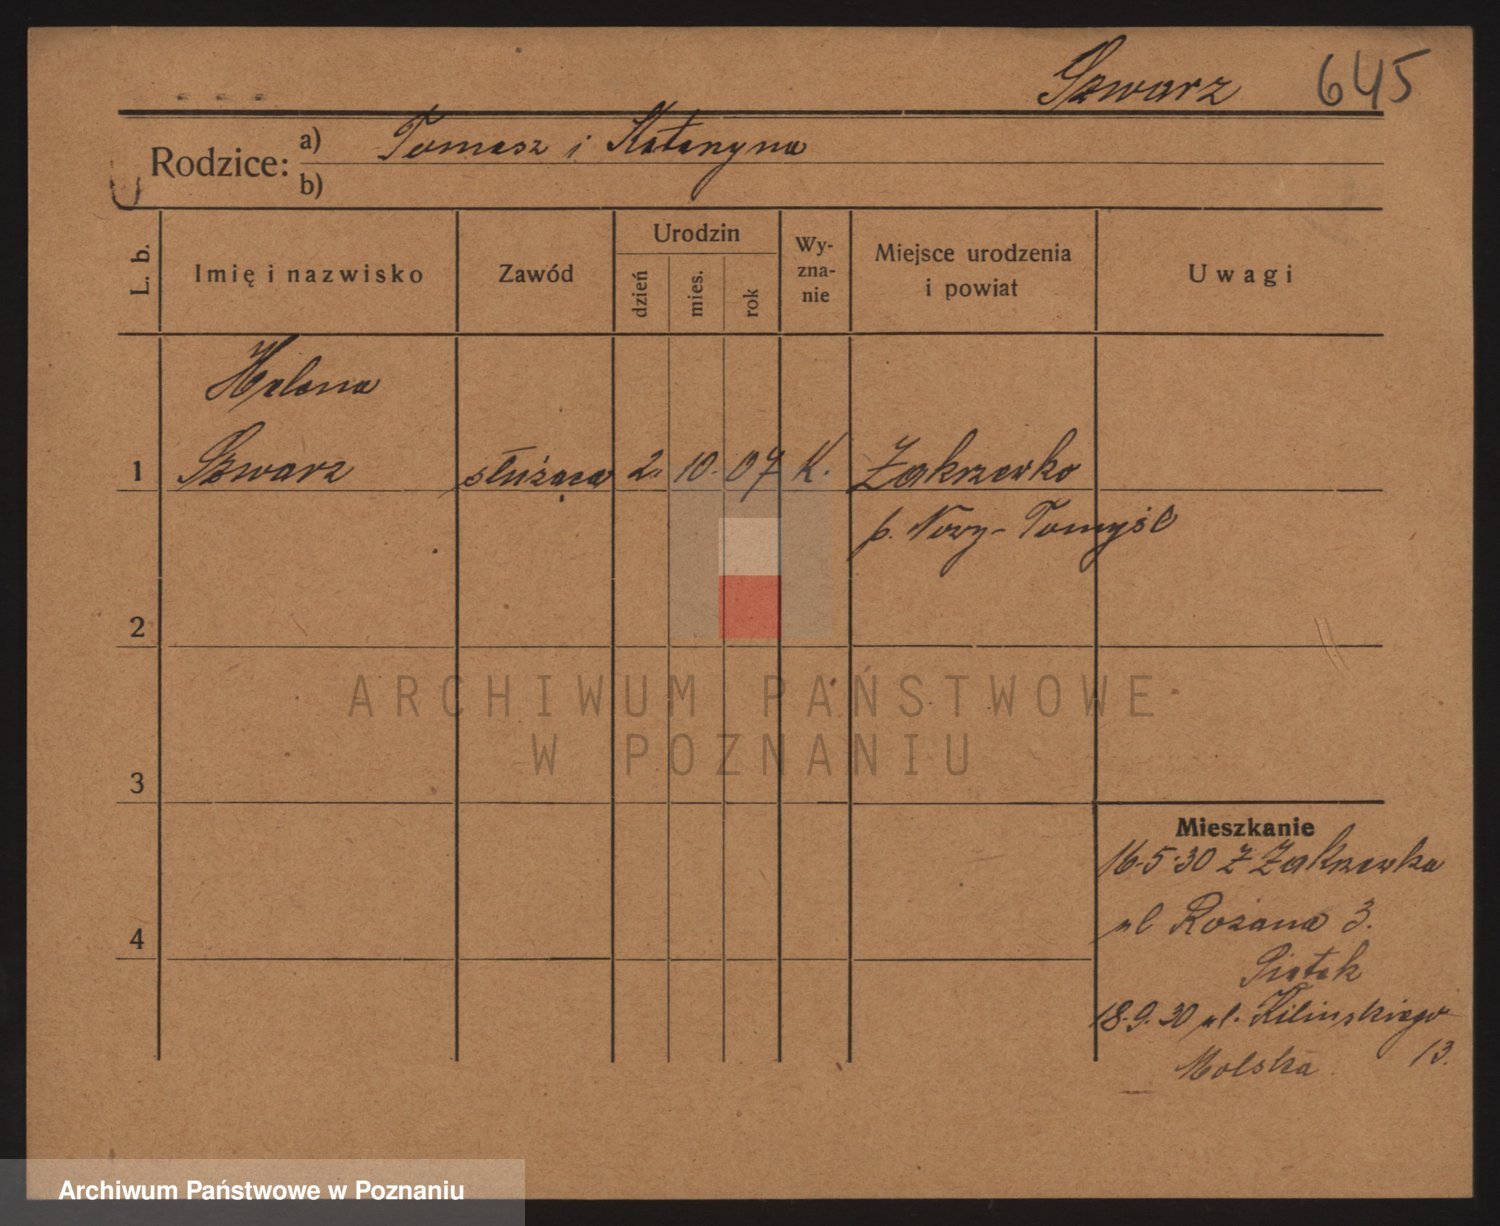 Szwarz 645
Rodzice: a) Tomasz i Katarzyna
b)
L. b. Imię i nazwisko Zawód Urodzin dzień mies. rok Wyznanie Miejsce urodzenia i powiat Uwagi
Helena
1 Szwarz służąca 2. 10. 07 K. Zakrzewko
p. Nowy-Tomyśl
2
ARCHIWUM PAŃSTWOWE
W POZNANIU
3
Mieszkanie
16-5-30 z Zakrzewka
ul Rożana 3.
4
Piątek
18.9.30 ul. Kilińskiego
13.
Molska
Archiwum Państwowe w Poznaniu